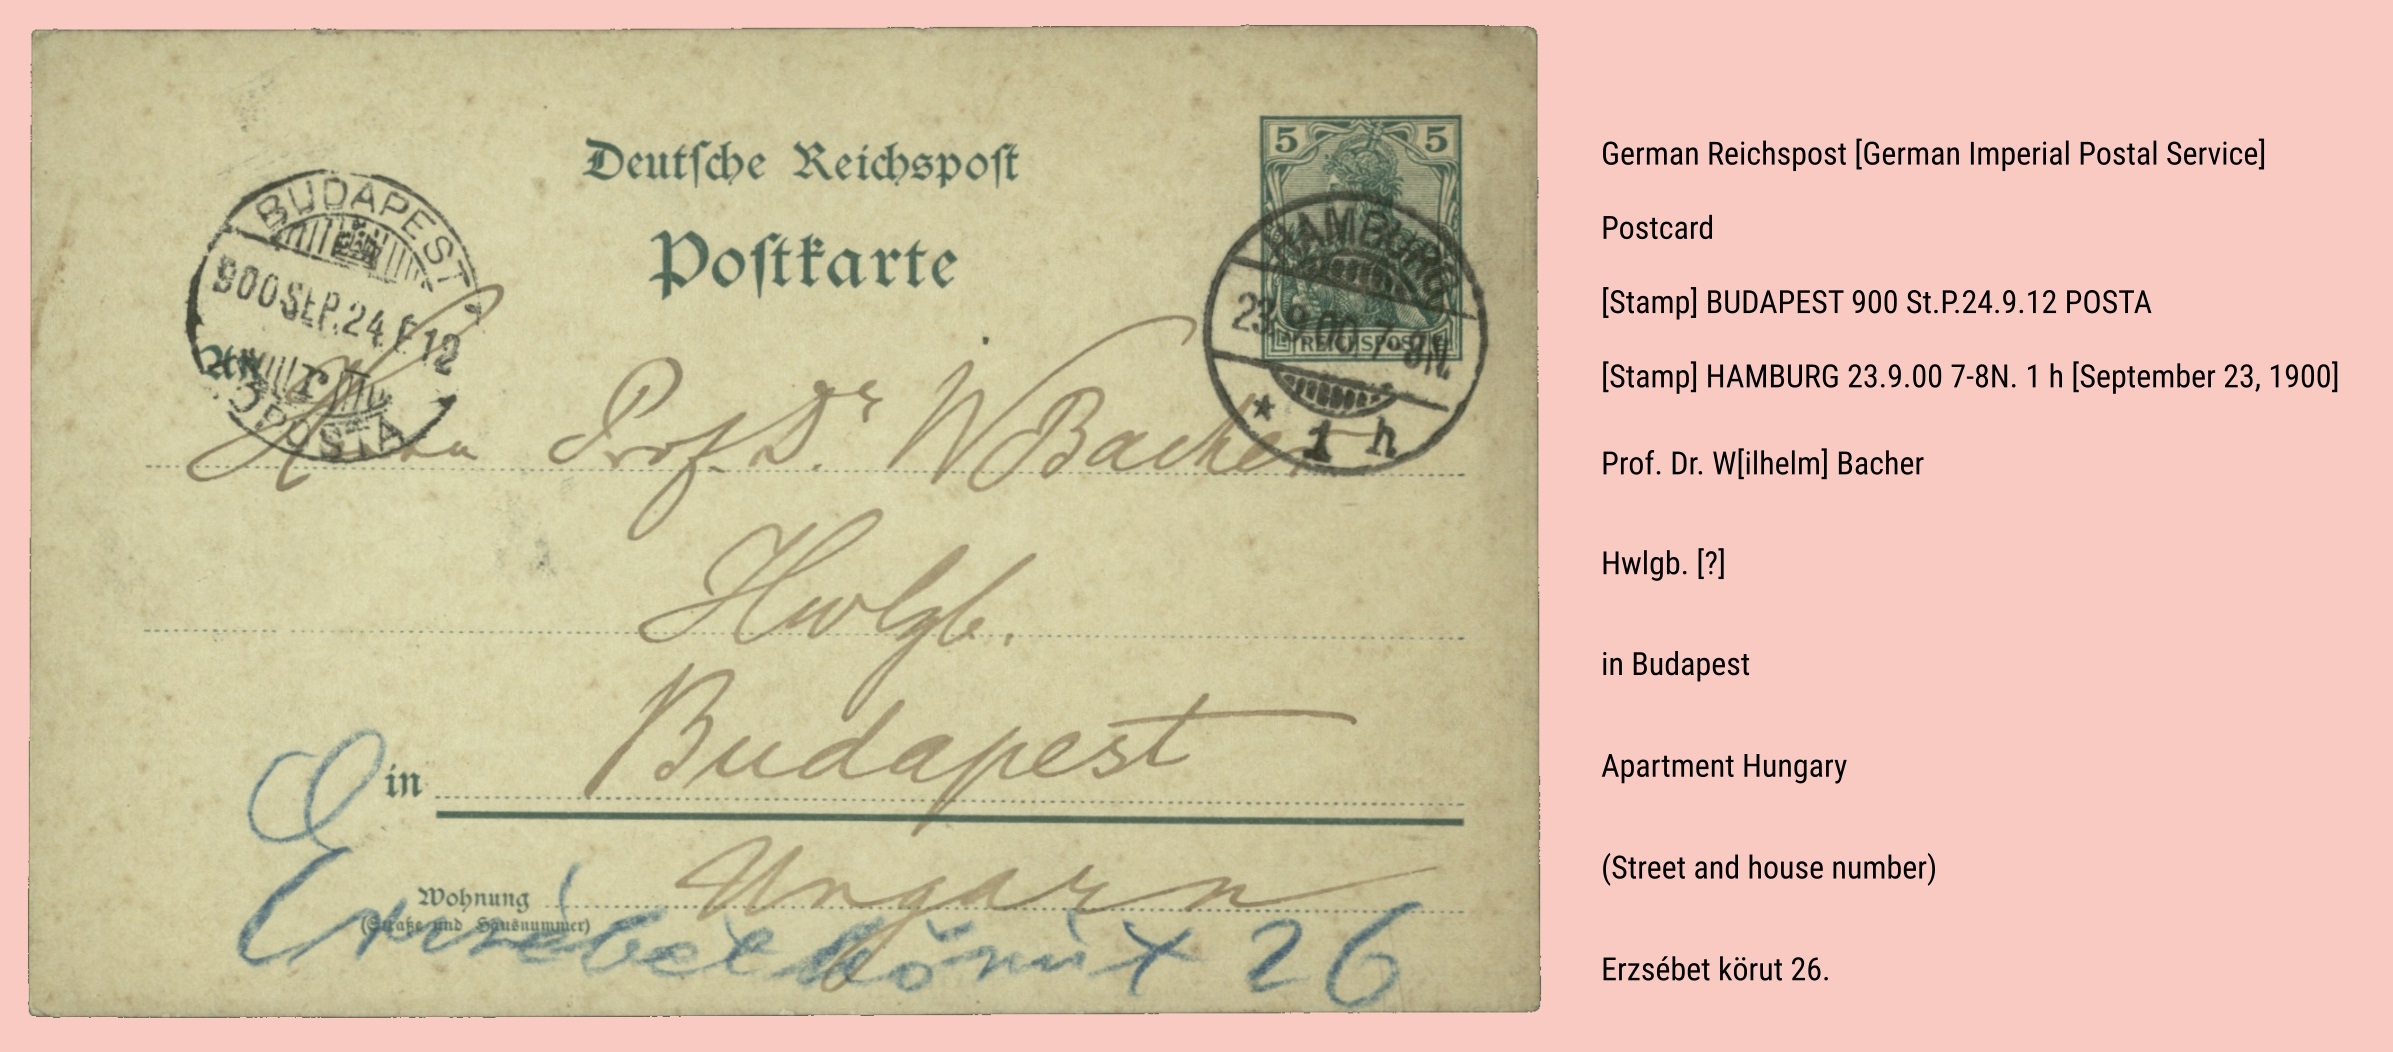 Deutsche Reichspost
Postkarte
5 5
REICHSPOST
BUDAPEST
900 SEP. 24
POSTA
HAMBURG
23.9.00. 7-8N.
* 1 h
An
Herrn Prof. Dr. W Bacher
Hwlgb.
in Budapest
Wohnung Ungarn
(Straße und Hausnummer)
Erzsébet körút 26
German Reichspost [German Imperial Postal Service]
Postcard
[Stamp] BUDAPEST 900 St.P.24.9.12 POSTA
[Stamp] HAMBURG 23.9.00 7-8N. 1 h [September 23, 1900]
Prof. Dr. W[ilhelm] Bacher
Hwlgb. [?]
in Budapest
Apartment Hungary
(Street and house number)
Erzsébet körut 26.